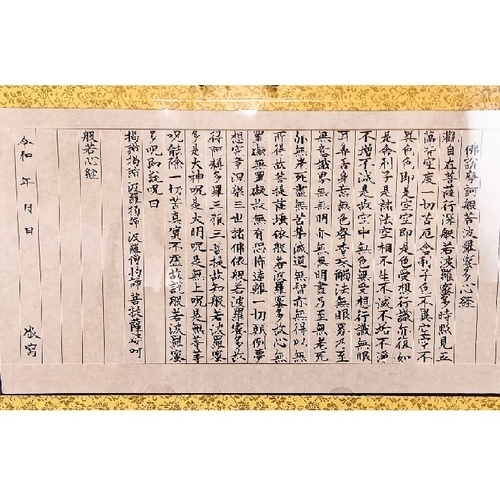 佛說摩訶般若波羅蜜多心經
觀自在菩薩行深般若波羅蜜多時照見五
蘊皆空度一切苦厄舎利子色不異空空不
異色色即是空空即是色受想行識亦復如
是舎利子是諸法空相不生不滅不垢不淨
不増不減是故空中無色無受想行識無眼
耳鼻舌身意無色聲香味觸法無眼界乃至
無意識界無無明亦無無明盡乃至無老死
亦無老死盡無苦集滅道無智亦無得以無
所得故菩提薩埵依般若波羅蜜多故心無
罣礙無罣礙故無有恐怖遠離一切顛倒夢
想究竟涅槃三世諸佛依般若波羅蜜多故
得阿耨多羅三藐三菩提故知般若波羅蜜
多是大神呪是大明呪是無上呪是無等等
呪能除一切苦真實不虚故說般若波羅蜜
多呪即說呪曰
揭諦揭諦 波羅揭諦 波羅僧揭諦 菩提薩婆訶
般若心経
令和 年 月 日
敬寫